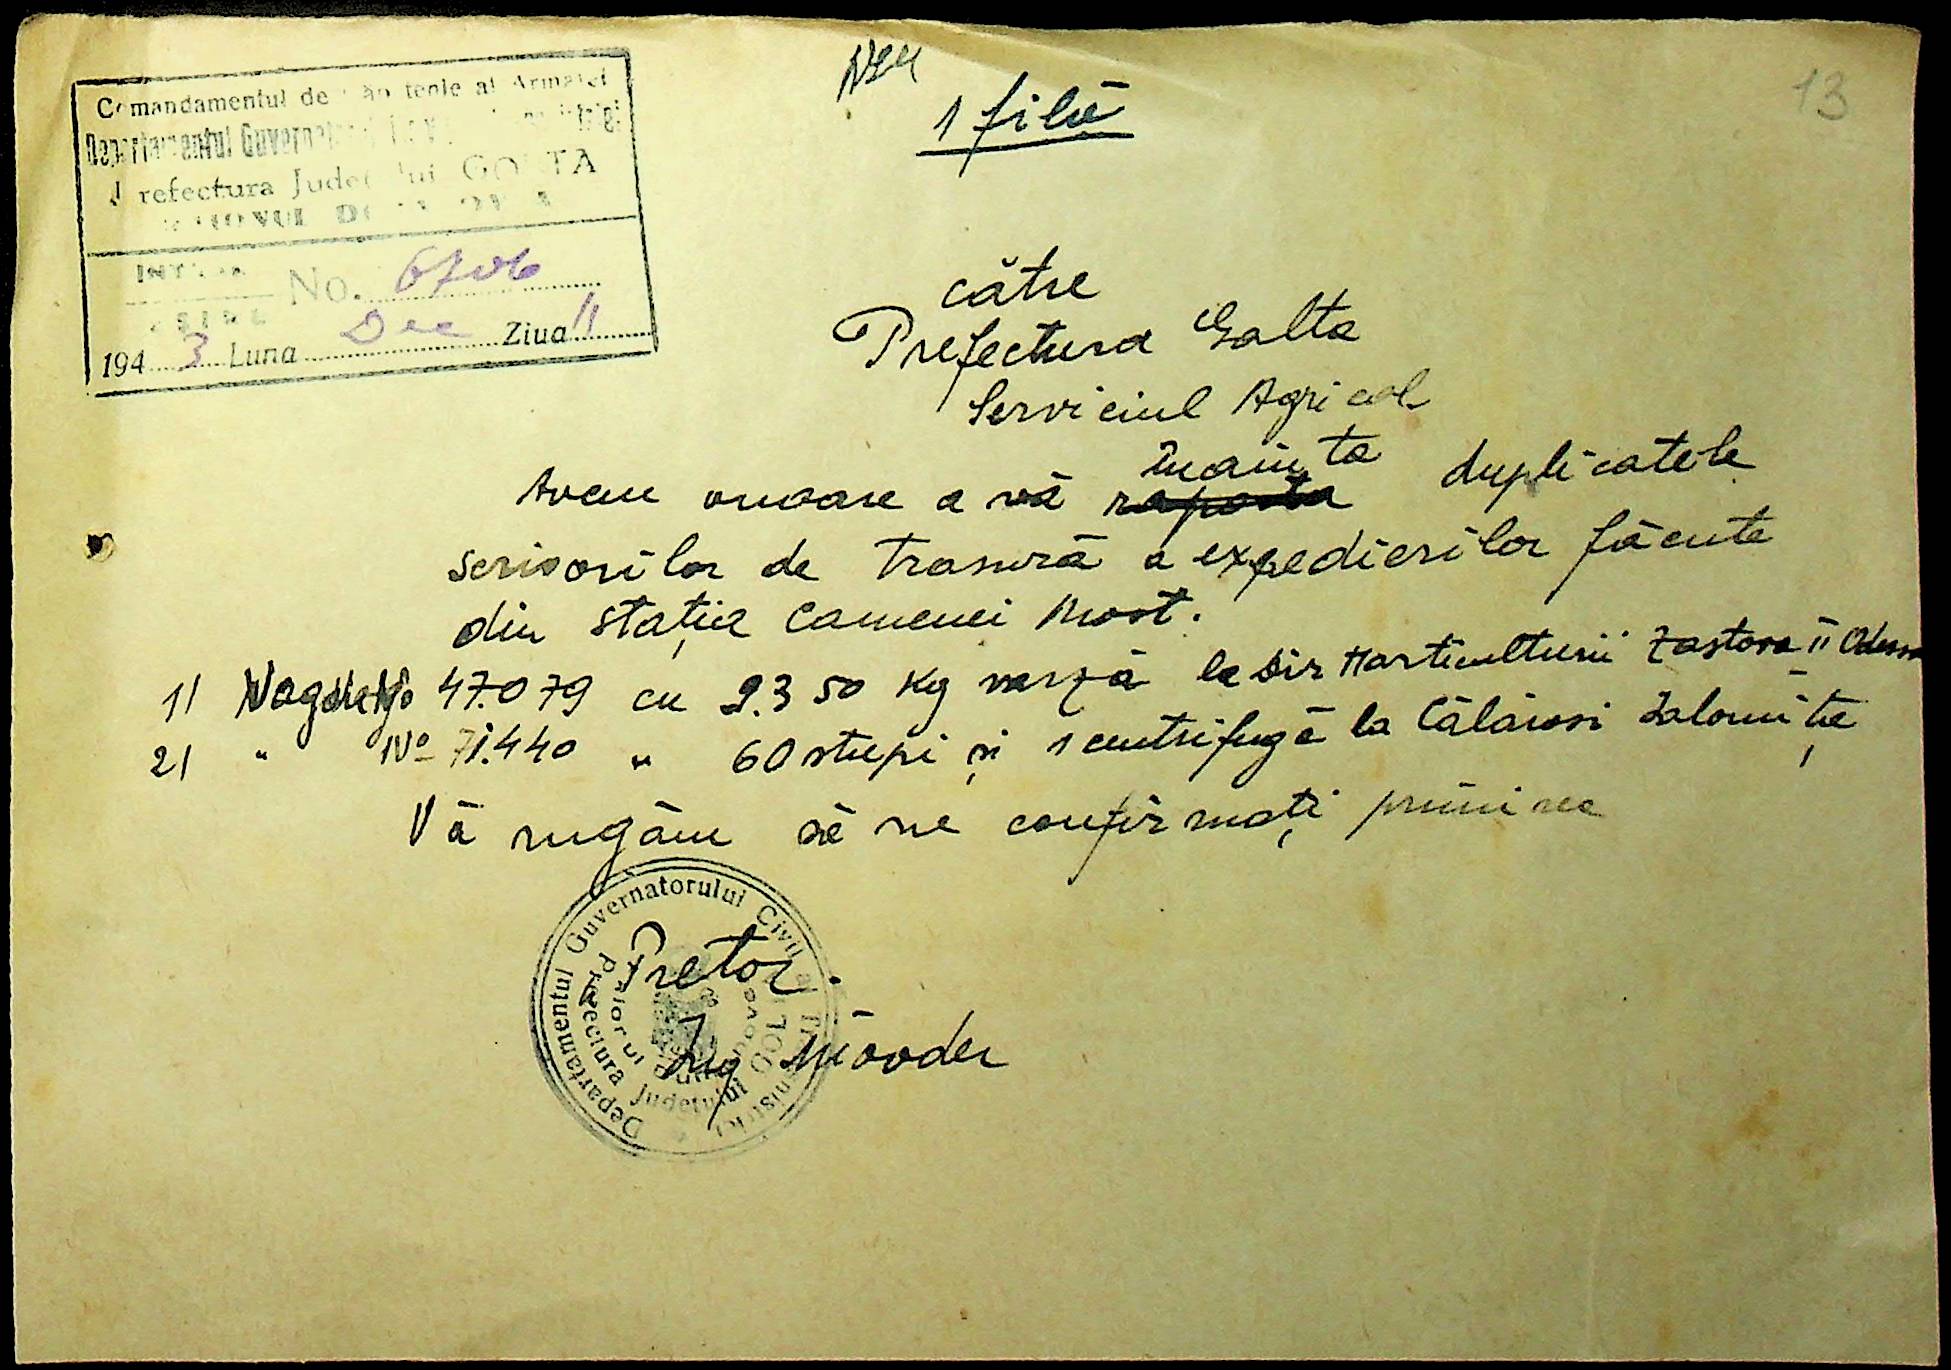 13
1 filă
Comandamentul de al Armatei
Departamentul
Prefectura Județului GOLTA
No. 6706
1943 Luna Dec Ziua 11
către
Prefectura Golta
Serviciul Agricol
Avem onoare a vă raporta înainta duplicatele
scrisorilor de trasură a expedierilor făcute
din stația Camenei Most.
1/ No 47.079 cu 9.350 Kg varză la Dir Horticulturii Zastava II Odessa
2/ " No 71.440 " 60 stupi și 1 centrifugă la Călărași Ialomița
Vă rugăm să ne confirmați primirea
Pretor.
Ing
Departamentul Guvernatorului Civil al
Prefectura Județului GOLTA